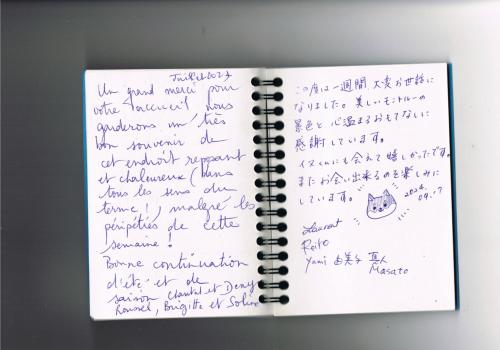 Juillet 2024
Un grand merci pour
votre accueil, nous
garderons un très
bon souvenir de
cet endroit reposant
et chaleureux (dans
tous les sens du
terme), malgré les
péripéties de cette
semaine !
Bonne continuation
d'été et de
saison Chantal et Deny
Roussel, Brigitte et Solin
この度は一週間、大変お世話に
なりました。美しいモントルーの
景色と心温まるおもてなしに
感謝しています。
イヌくんにも会えて嬉しかったです。
またお会い出来るのを楽しみに
しています。
2024.
09.17
Laurent
Reito
Yumi 由美子 真人
Masato